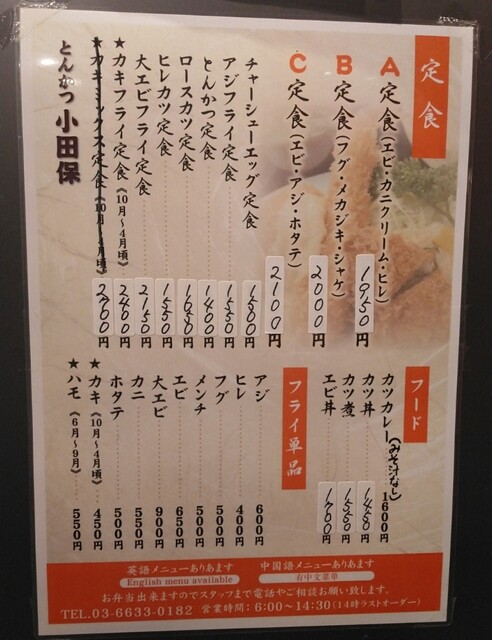 定食
A 定食(エビ・カニクリーム・ヒレ) 1950円
B 定食(フグ・メカジキ・シャケ) 2000円
C 定食(エビ・アジ・ホタテ) 2100円
チャーシューエッグ定食 1800円
アジフライ定食 1550円
とんかつ定食 1400円
ロースカツ定食 1650円
ヒレカツ定食 1550円
大エビフライ定食 2150円
★カキフライ定食《10月~4月頃》 2400円
★カキミックス定食《10月~4月頃》 2700円
とんかつ 小田保
フード
カツカレー(みそ汁なし) 1600円
カツ丼 1450円
カツ煮 1550円
エビ丼 1700円
フライ単品
アジ 600円
ヒレ 400円
フグ 500円
メンチ 500円
エビ 650円
大エビ 900円
カニ 550円
ホタテ 500円
★カキ《10月~4月頃》 450円
★ハモ《6月~9月》 550円
英語メニューありあます 中国語メニューありあます
English menu available 有中文菜单
お弁当出来ますのでスタッフまで電話やご相談お願い致します。
TEL.03-6633-0182 営業時間:6:00~14:30(14時ラストオーダー)